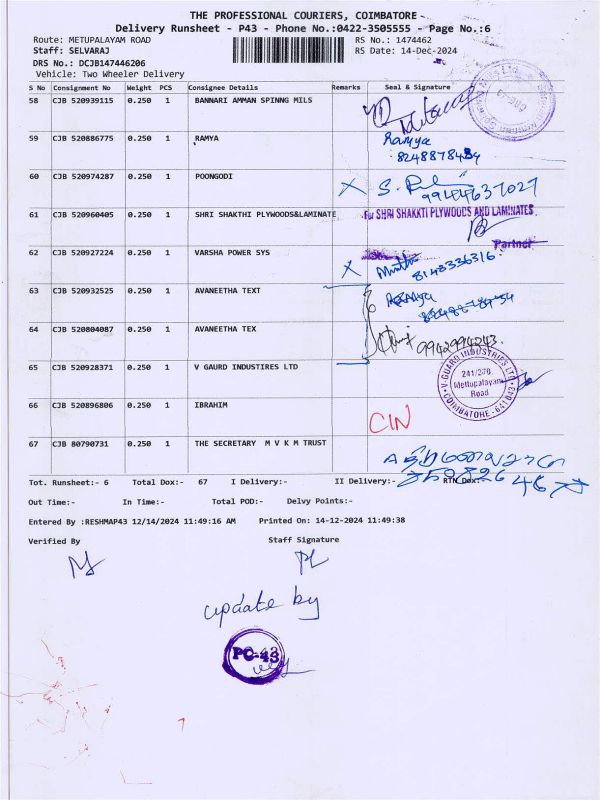 THE PROFESSIONAL COURIERS, COIMBATORE
Delivery Runsheet - P43 - Phone No.:0422-3505555 - Page No.:6
Route: METUPALAYAM ROAD RS No.: 1474462
Staff: SELVARAJ RS Date: 14-Dec-2024
DRS No.: DCJB147446206
Vehicle: Two Wheeler Delivery
S No Consignment No Weight PCS Consignee Details Remarks Seal & Signature
58 CJB 520939115 0.250 1 BANNARI AMMAN SPINNG MILS
59 CJB 520886775 0.250 1 RAMYA Ramya
60 CJB 520974287 0.250 1 POONGODI
9944637027
61 CJB 520960405 0.250 1 SHRI SHAKTHI PLYWOODS&LAMINATE For SHRI SHAKKTI PLYWOODS AND LAMINATES
Partner
62 CJB 520927224 0.250 1 VARSHA POWER SYS
8148336316
63 CJB 520932525 0.250 1 AVANEETHA TEXT
64 CJB 520804087 0.250 1 AVANEETHA TEX
9942994243
65 CJB 520928371 0.250 1 V GAURD INDUSTIRES LTD V-GUARD INDUSTRIES LTD
241/276
Mettupalayam
Road
COIMBATORE - 641 043
66 CJB 520896806 0.250 1 IBRAHIM CIN
67 CJB 80790731 0.250 1 THE SECRETARY M V K M TRUST
Tot. Runsheet:- 6 Total Dox:- 67 I Delivery:- II Delivery:- RTN Dox:-
Out Time:- In Time:- Total POD:- Delvy Points:-
Entered By :RESHMAP43 12/14/2024 11:49:16 AM Printed On: 14-12-2024 11:49:38
Verified By Staff Signature
update by
PC-43